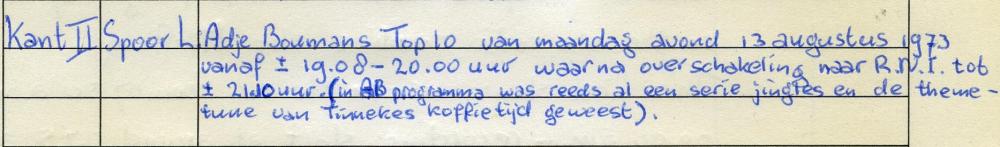 Kant II Spoor L: Adje Boumans Top 10 van maandag avond 13 augustus 1973
vanaf ± 19.08 - 20.00 uur waarna overschakeling naar R.N.I. tot
± 21.10 uur. (in AB programma was reeds al een serie jingles en de theme-
tune van Tinnekes koffietijd geweest).